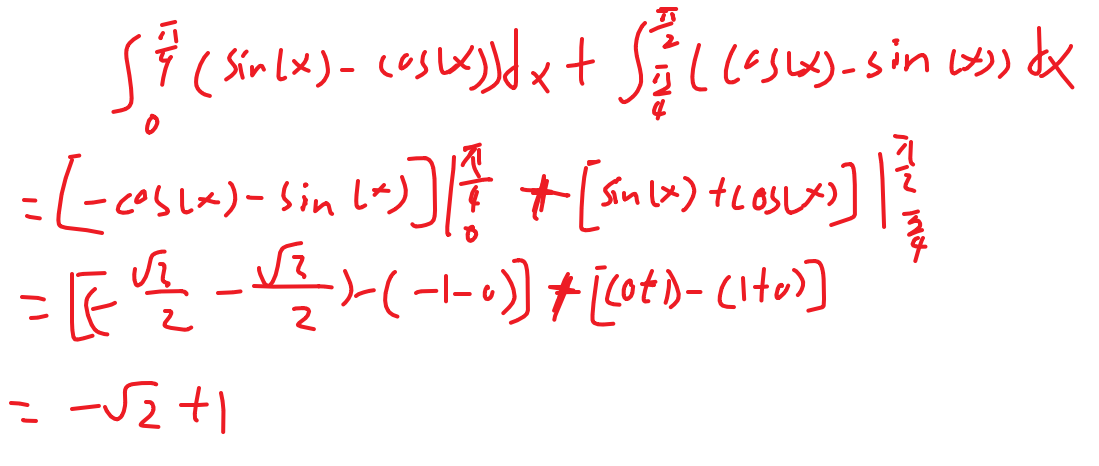 ∫₀^(π/4) (sin(x) - cos(x))dx + ∫_(π/4)^(π/2) (cos(x) - sin(x)) dx
= [-cos(x) - sin(x)]|₀^(π/4) + [sin(x) + cos(x)]|_(π/4)^(π/2)
= [(-√2/2 - √2/2) - (-1-0)] + [(0+1) - (1+0)]
= -√2 + 1